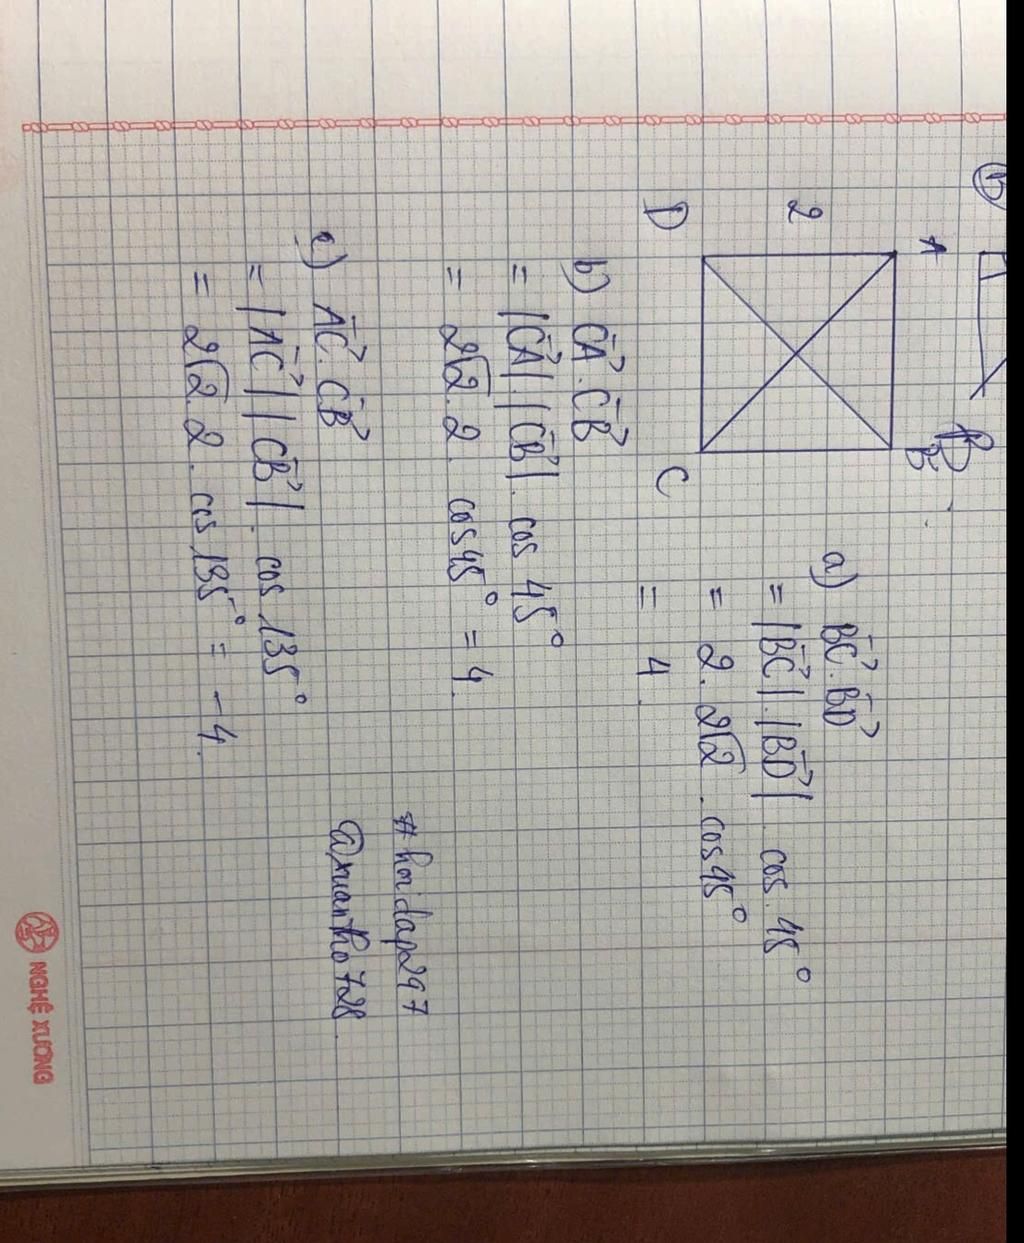 A
B
2
D
C
a) BC⃗ . BD⃗
= |BC⃗| . |BD⃗| . cos . 45°
= 2 . 2√2 . cos45°
= 4
b) CA⃗ . CB⃗
= |CA⃗| . |CB⃗| . cos 45°
= 2√2 . 2 . cos45° = 4
c) AC⃗ . CB⃗
= |AC⃗| |CB⃗| . cos 135°
= 2√2 . 2 . cos 135° = -4
#hoidap247
@xuantho728
NGHỆ XƯƠNG